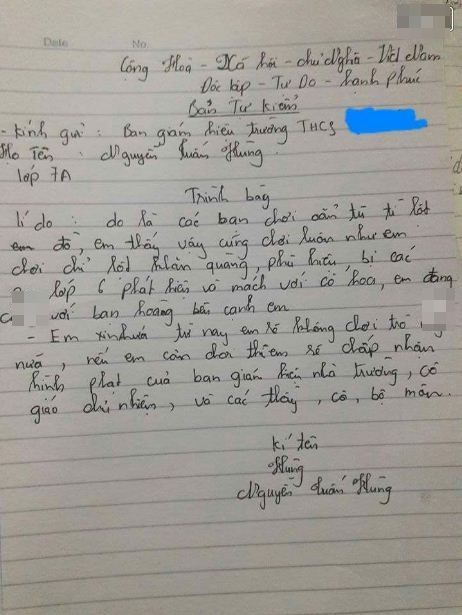 Date No.
Cộng Hoà - Xã hội - chủ Nghĩa - Việt Nam
Độc lập - Tự Do - hạnh phúc
Bản Tự kiểm
- kính gửi : Ban giám hiệu trường THCS
Họ Tên : Nguyễn Tuấn Hùng
lớp 7A
Trình bày
lí do : do là các bạn chơi oẳn tù tì lột
em đồ, em thấy vậy cũng chơi luôn như em
chơi chỉ lột khăn quàng, phù hiệu bị các
lớp 6 phát hiện vô mách với cô hoa, em đang
với bạn hoàng bên cạnh em
- Em xin hứa từ nay em sẽ không chơi trò
nữa, nếu em còn chơi thì em sẽ chấp nhận
hình phạt của ban giám hiệu nhà trường, cô
giáo chủ nhiệm, và các thầy, cô, bộ môn.
kí tên
Hùng
Nguyễn Tuấn Hùng